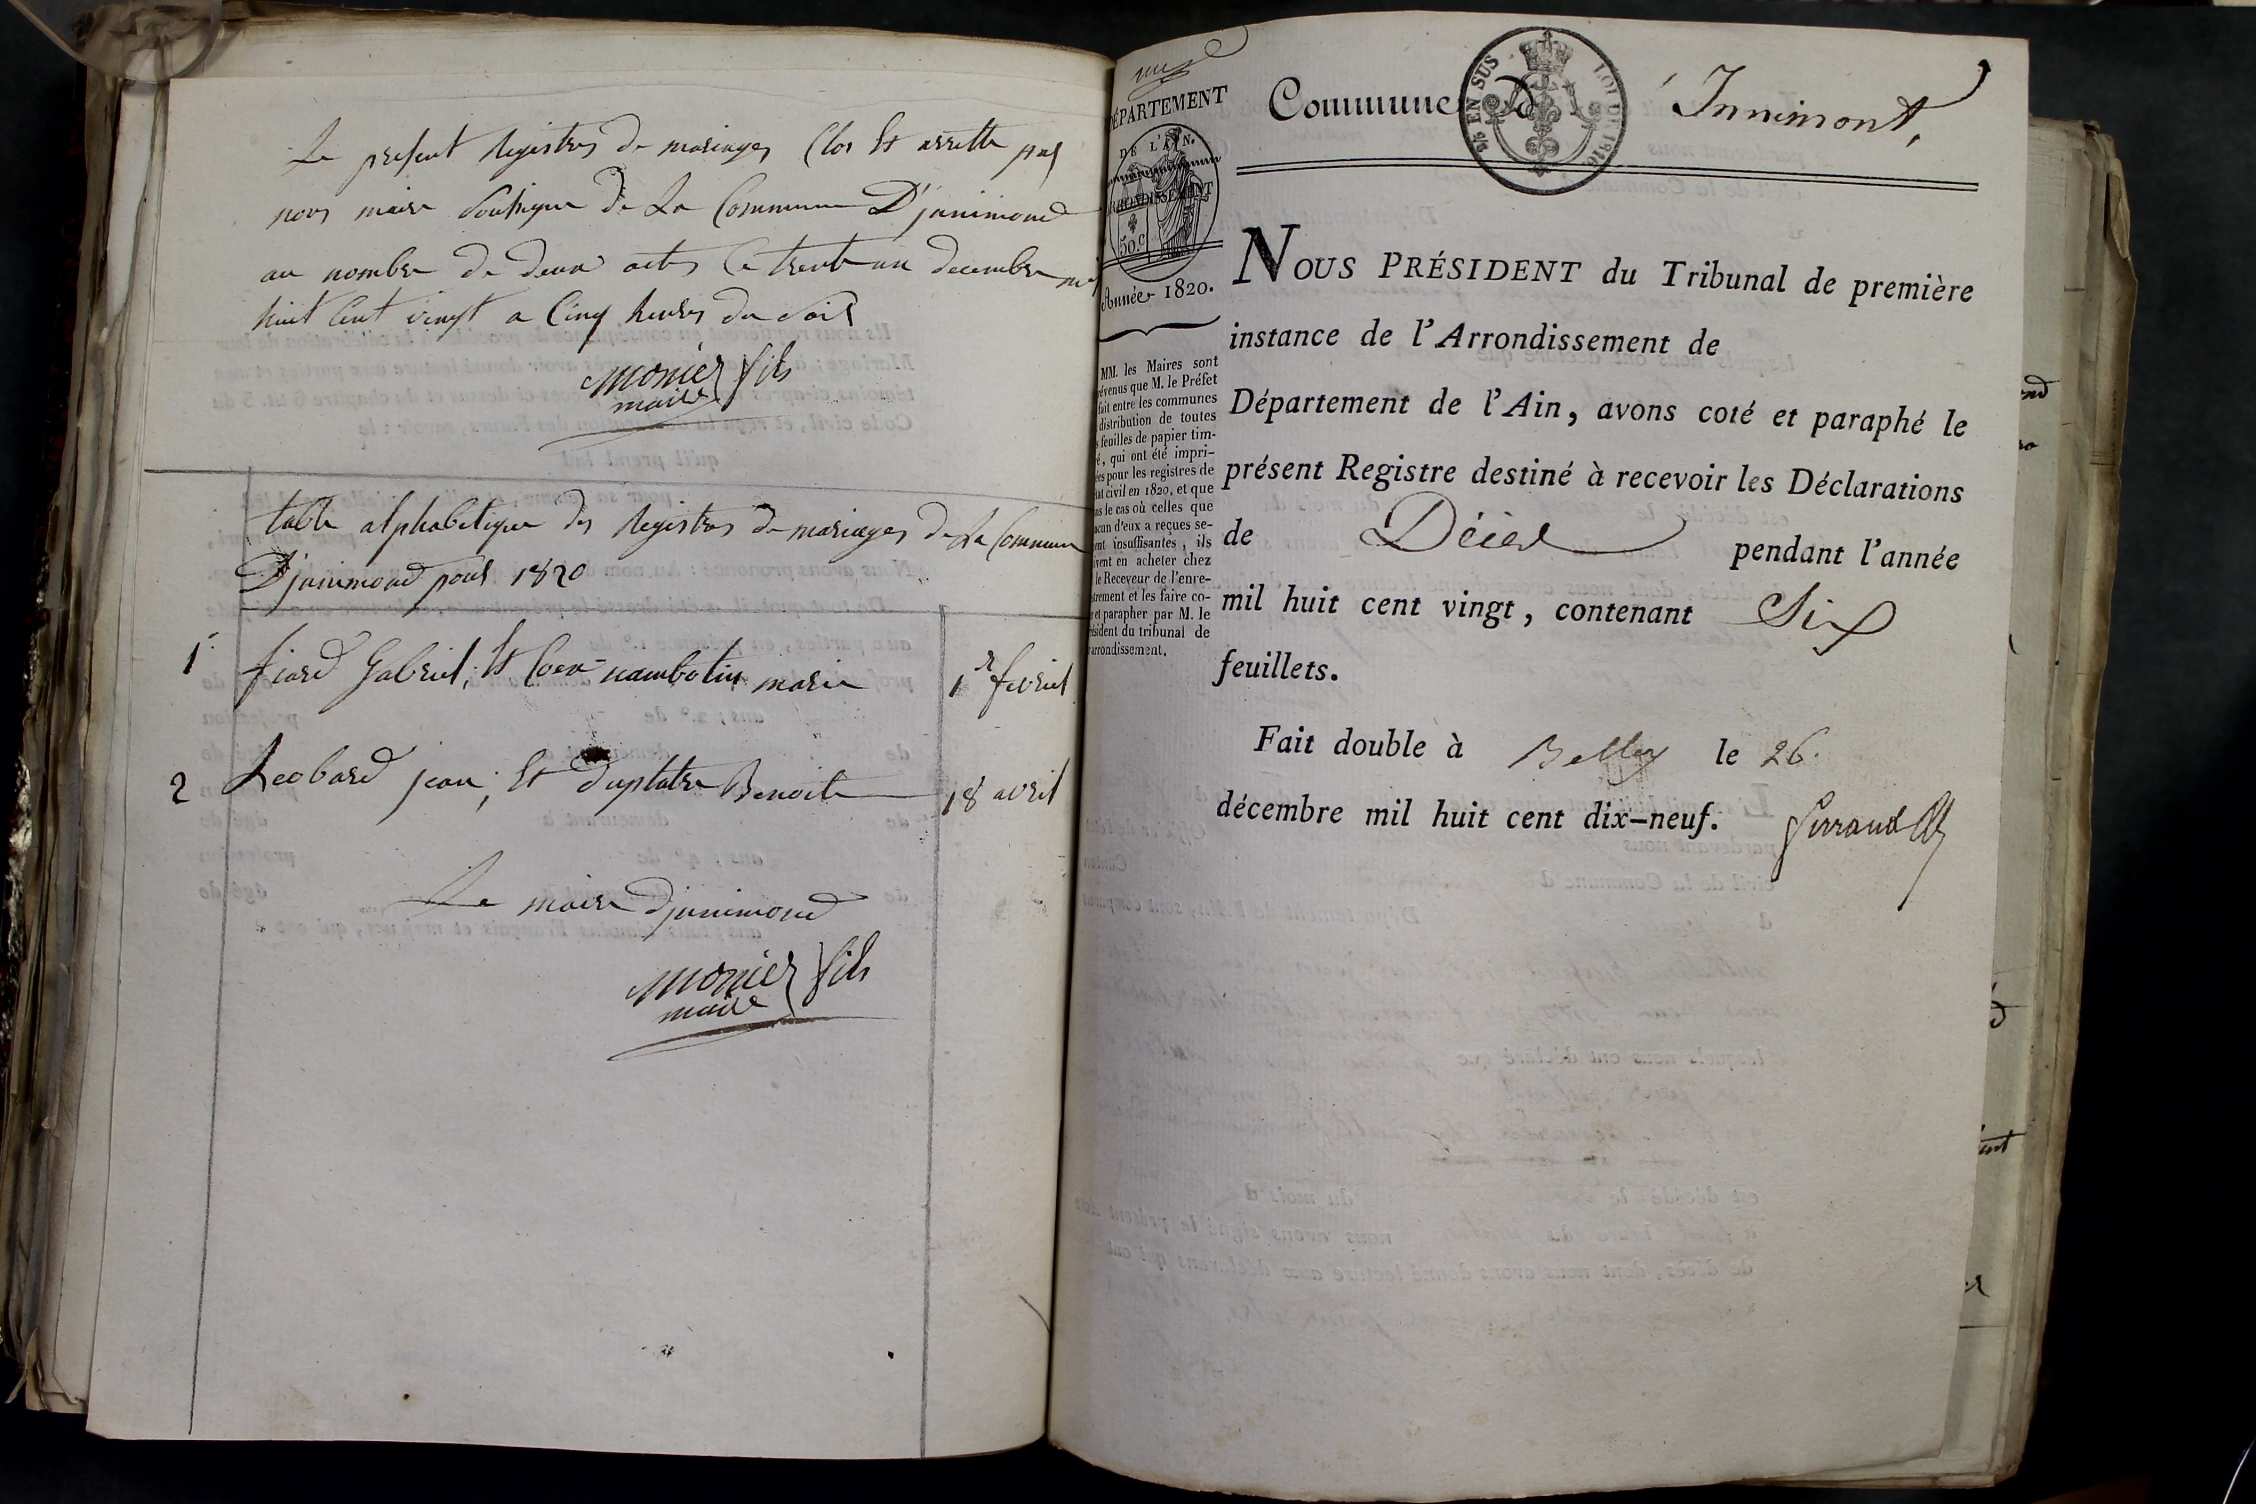 Le present Registres de mariages Clos Et arrette par
nous maire soussigne De La Commune D'jnnimond
au nombre De deux actes Ce trente un decembre mil
huit Cent vingt a Cinq heures du soir
monier fils
maire
table alphabetique des Registres de mariages De La Commune
D'jnnimond pour 1820
1 fiard Gabriel, Et Coex nambotin marie 1r fevrier
2 Leobard jean, Et Duplatre Benoite 18 avril
Le maire D'jnnimond
monier fils
maire
DÉPARTEMENT
DE L'AIN.
ARRONDISSEMENT
50.c
Année 1820.
MM. les Maires sont
prévenus que M. le Préfet
fait entre les communes
distribution de toutes
feuilles de papier tim-
bré, qui ont été impri-
mées pour les registres de
état civil en 1820, et que
dans le cas où celles que
chacun d'eux a reçues se-
roient insuffisantes, ils
doivent en acheter chez
le Receveur de l'enre-
gistrement et les faire co-
ter et parapher par M. le
Président du tribunal de
l'arrondissement.
EN SUS LOI DE 1816
Commune d'Innimont,
NOUS PRÉSIDENT du Tribunal de première
instance de l'Arrondissement de
Département de l'Ain, avons coté et paraphé le
présent Registre destiné à recevoir les Déclarations
de Décès pendant l'année
mil huit cent vingt, contenant Six
feuillets.
Fait double à Belley le 26.
décembre mil huit cent dix-neuf.